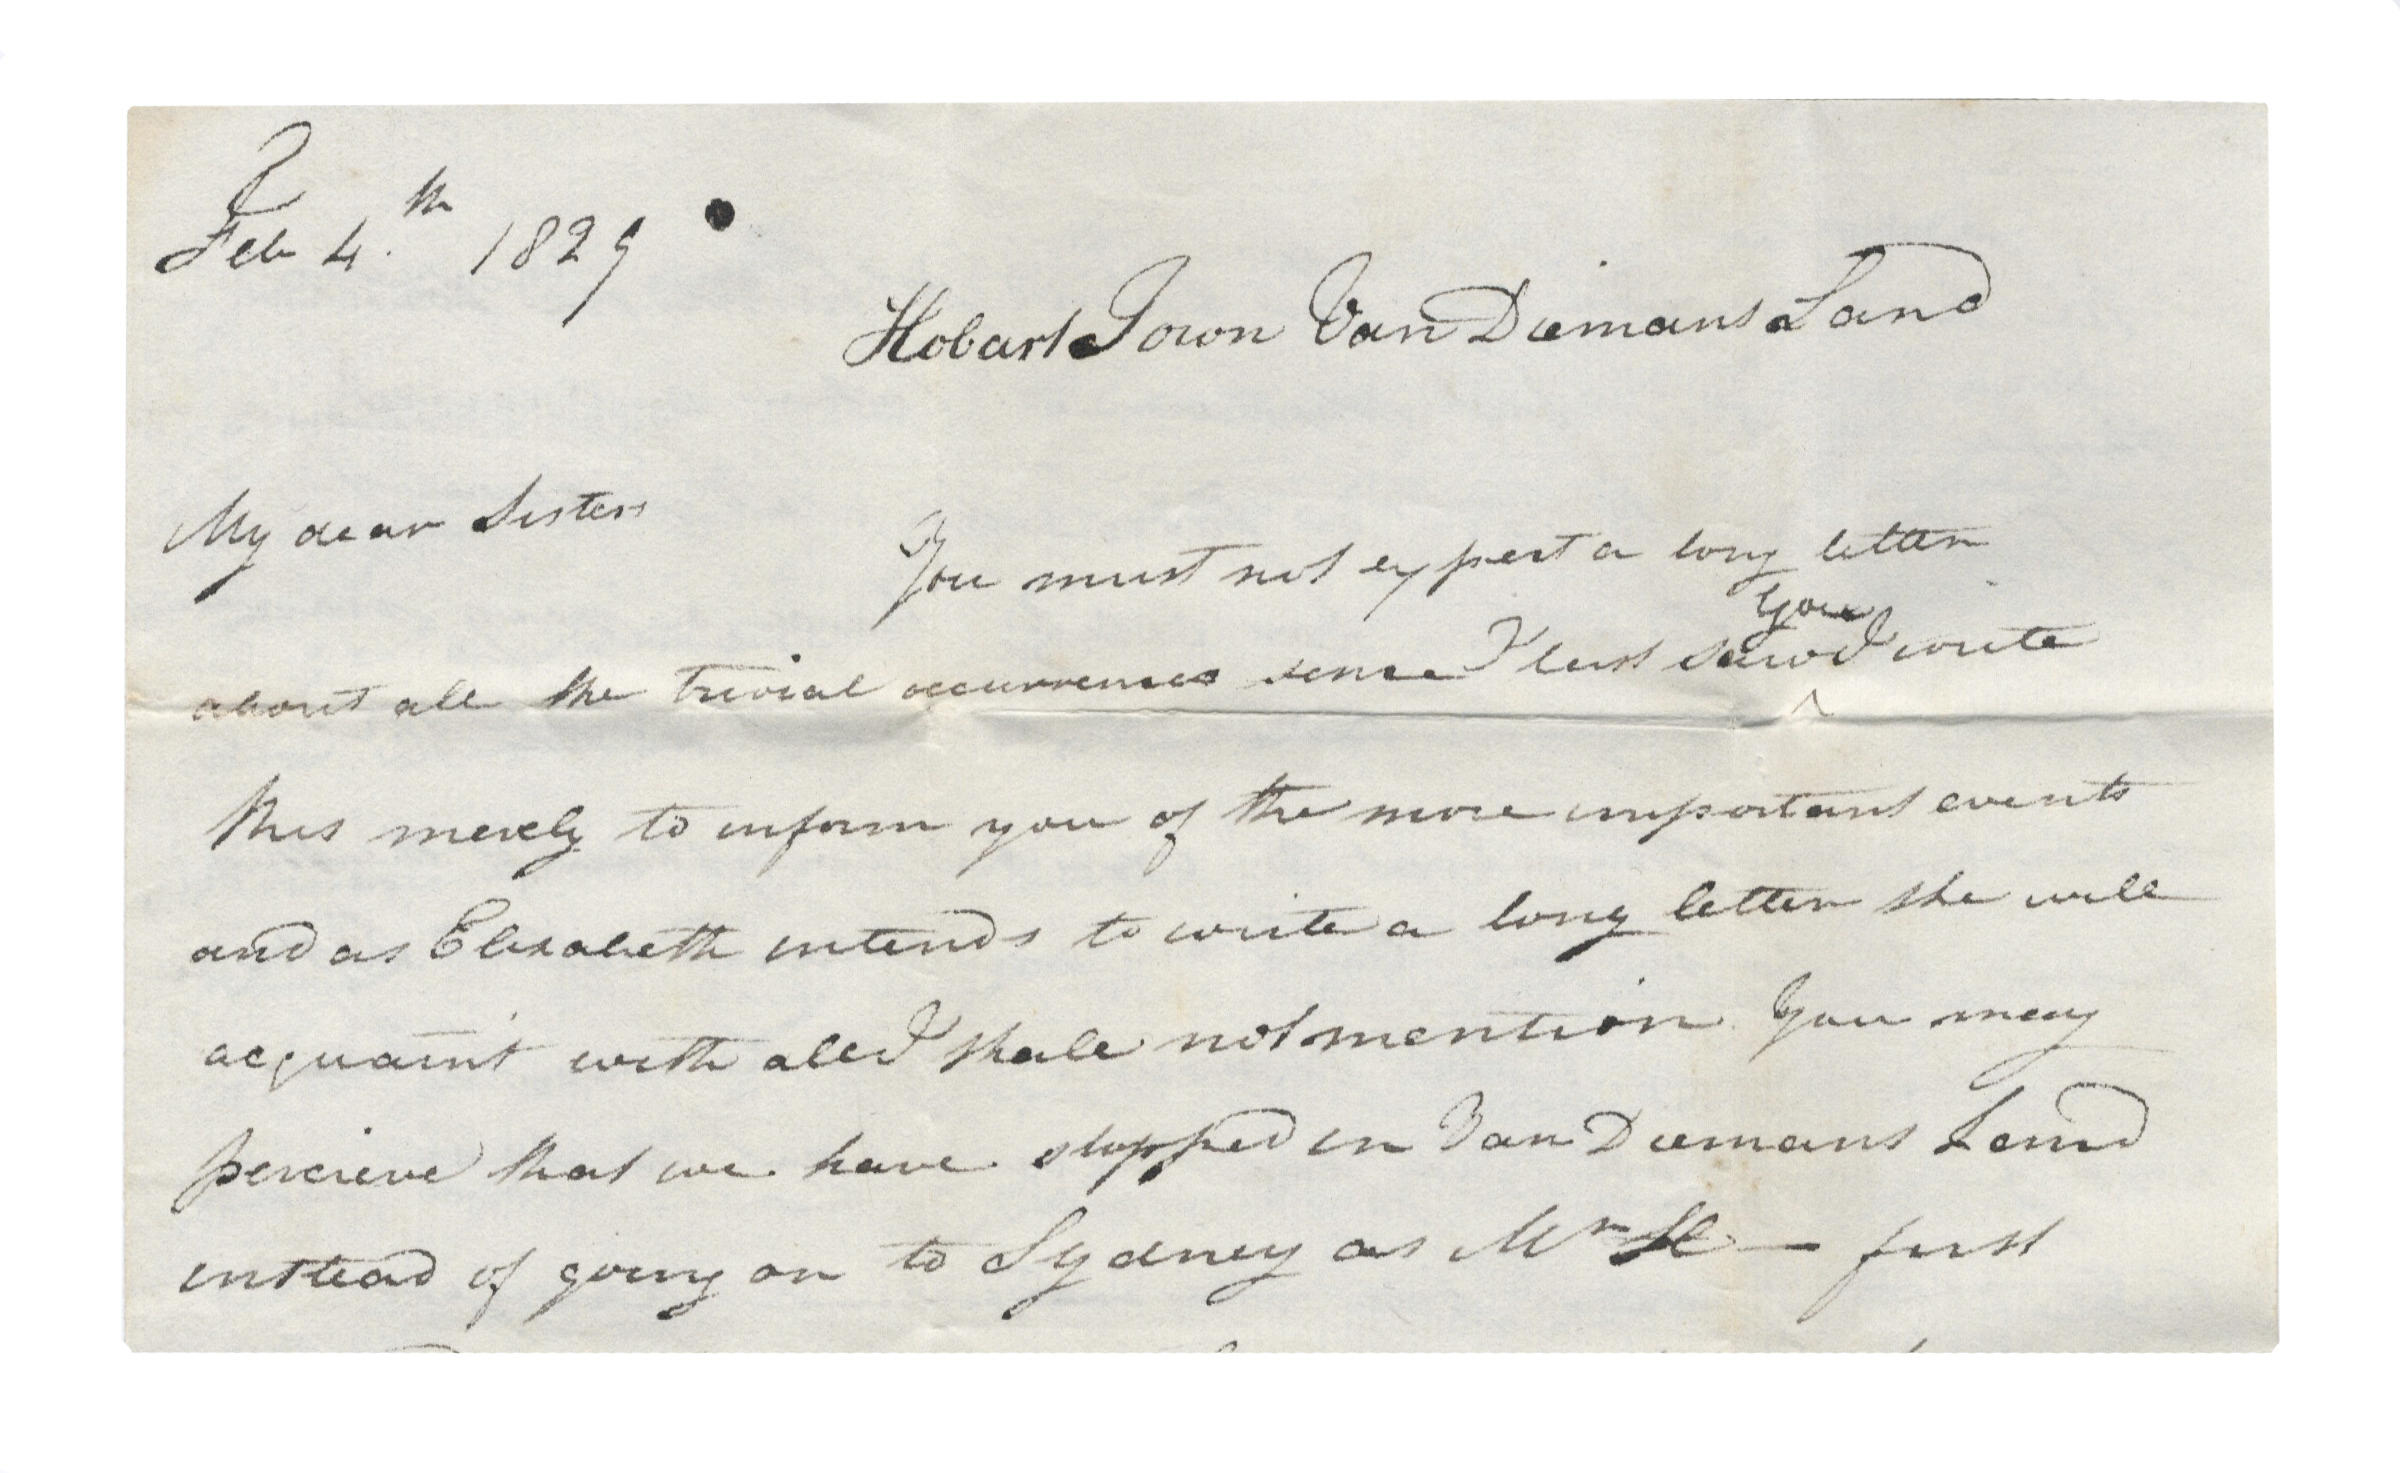 Feb 4.th 1829
Hobart Town Van Diemans Land
My dear Sisters
You must not expect a long letter
you
about all the trivial occurrences sence I last saw I write
this merely to inform you of the more important events
and as Elizabeth intends to write a long letter she will
acquaint with all I shall not mention You may
percieve that we have stopped in Van Diemans Land
instead of going on to Sydney as Mr H— first